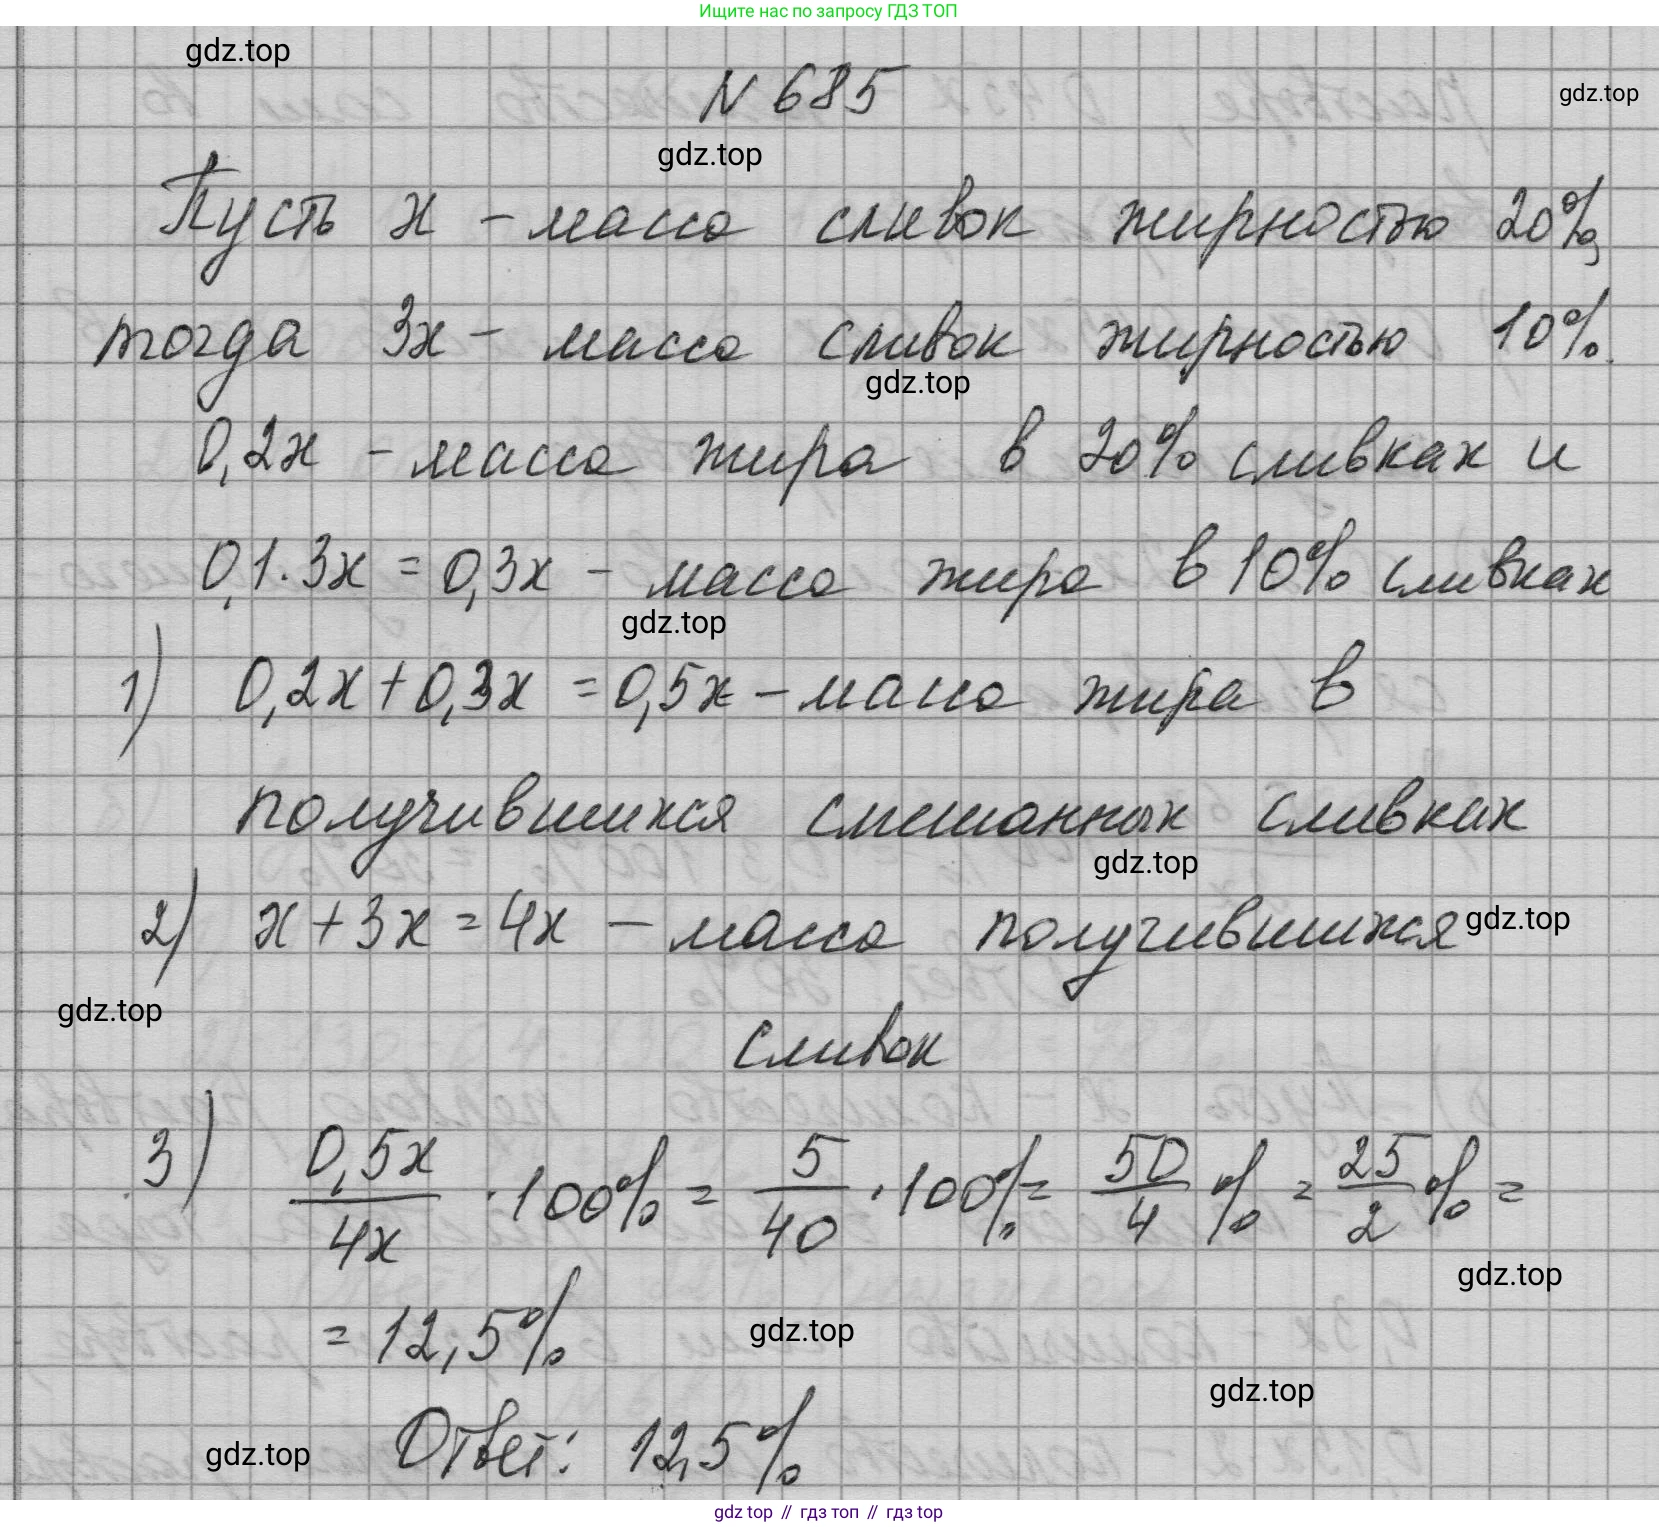 Ищите нас по запросу ГДЗ ТОП
gdz.top
N 685
gdz.top
gdz.top
Пусть x - масса сливок жирностью 20%,
тогда 3x - масса сливок жирностью 10%.
gdz.top
0,2x - масса жира в 20% сливках и
0,1·3x = 0,3x - масса жира в 10% сливках
gdz.top
1) 0,2x + 0,3x = 0,5x - масса жира в
получившихся смешанных сливках
gdz.top
2) x + 3x = 4x - масса получившихся
gdz.top
gdz.top
сливок
3) 0,5x/4x · 100% = 5/40 · 100% = 50/4 % = 25/2 % =
gdz.top
= 12,5%
gdz.top
gdz.top
Ответ: 12,5%
gdz.top
gdz top // гдз топ // gdz top